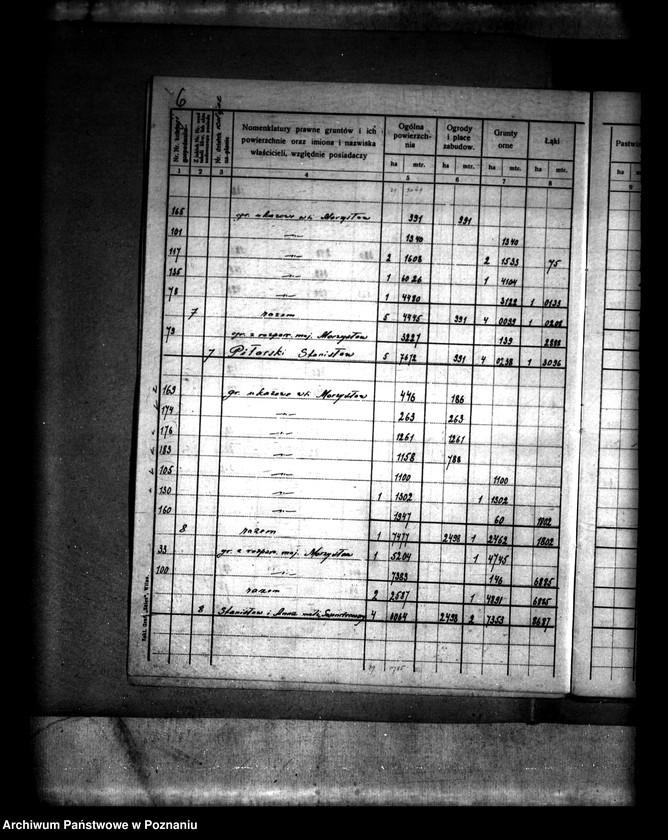 6
Nomenklatury prawne gruntów i ich powierzchnie oraz imiona i nazwiska właścicieli, względnie posiadaczy
Ogólna powierzchnia
Ogrody i place zabudow.
Grunty orne
Łąki
ha mtr. ha mtr. ha mtr. ha mtr. ha
1 2 3 4 5 6 7 8 9
165 gr. ukazowe wsi Morzysław 391 391
101 —„— 1340 1340
117 —„— 2 1608 2 1533 75
135 —„— 1 6026 1 4104
78 —„— 1 4480 3122 1 0133
7 razem 5 4445 391 4 0099 1 0208
73 gr. z rozporz. maj. Morzysław 3227 139 2888
7 Piłarski Stanisław 5 7672 391 4 0238 1 3096
163 gr. ukazowe wsi Morzysław 446 186
174 —„— 263 263
176 —„— 1261 1261
183 —„— 1158 788
105 —„— 1100 1100
130 —„— 1 1302 1 1302
160 —„— 1947 60 1802
8 razem 1 7477 2498 1 2462 1802
33 gr. z rozporz. maj. Morzysław 1 5204 1 4745
100 —„— 7383 146 6885
razem 2 2587 1 4891 6885
8 Stanisław i Anna 4 0064 2498 2 7353 8687
Archiwum Państwowe w Poznaniu